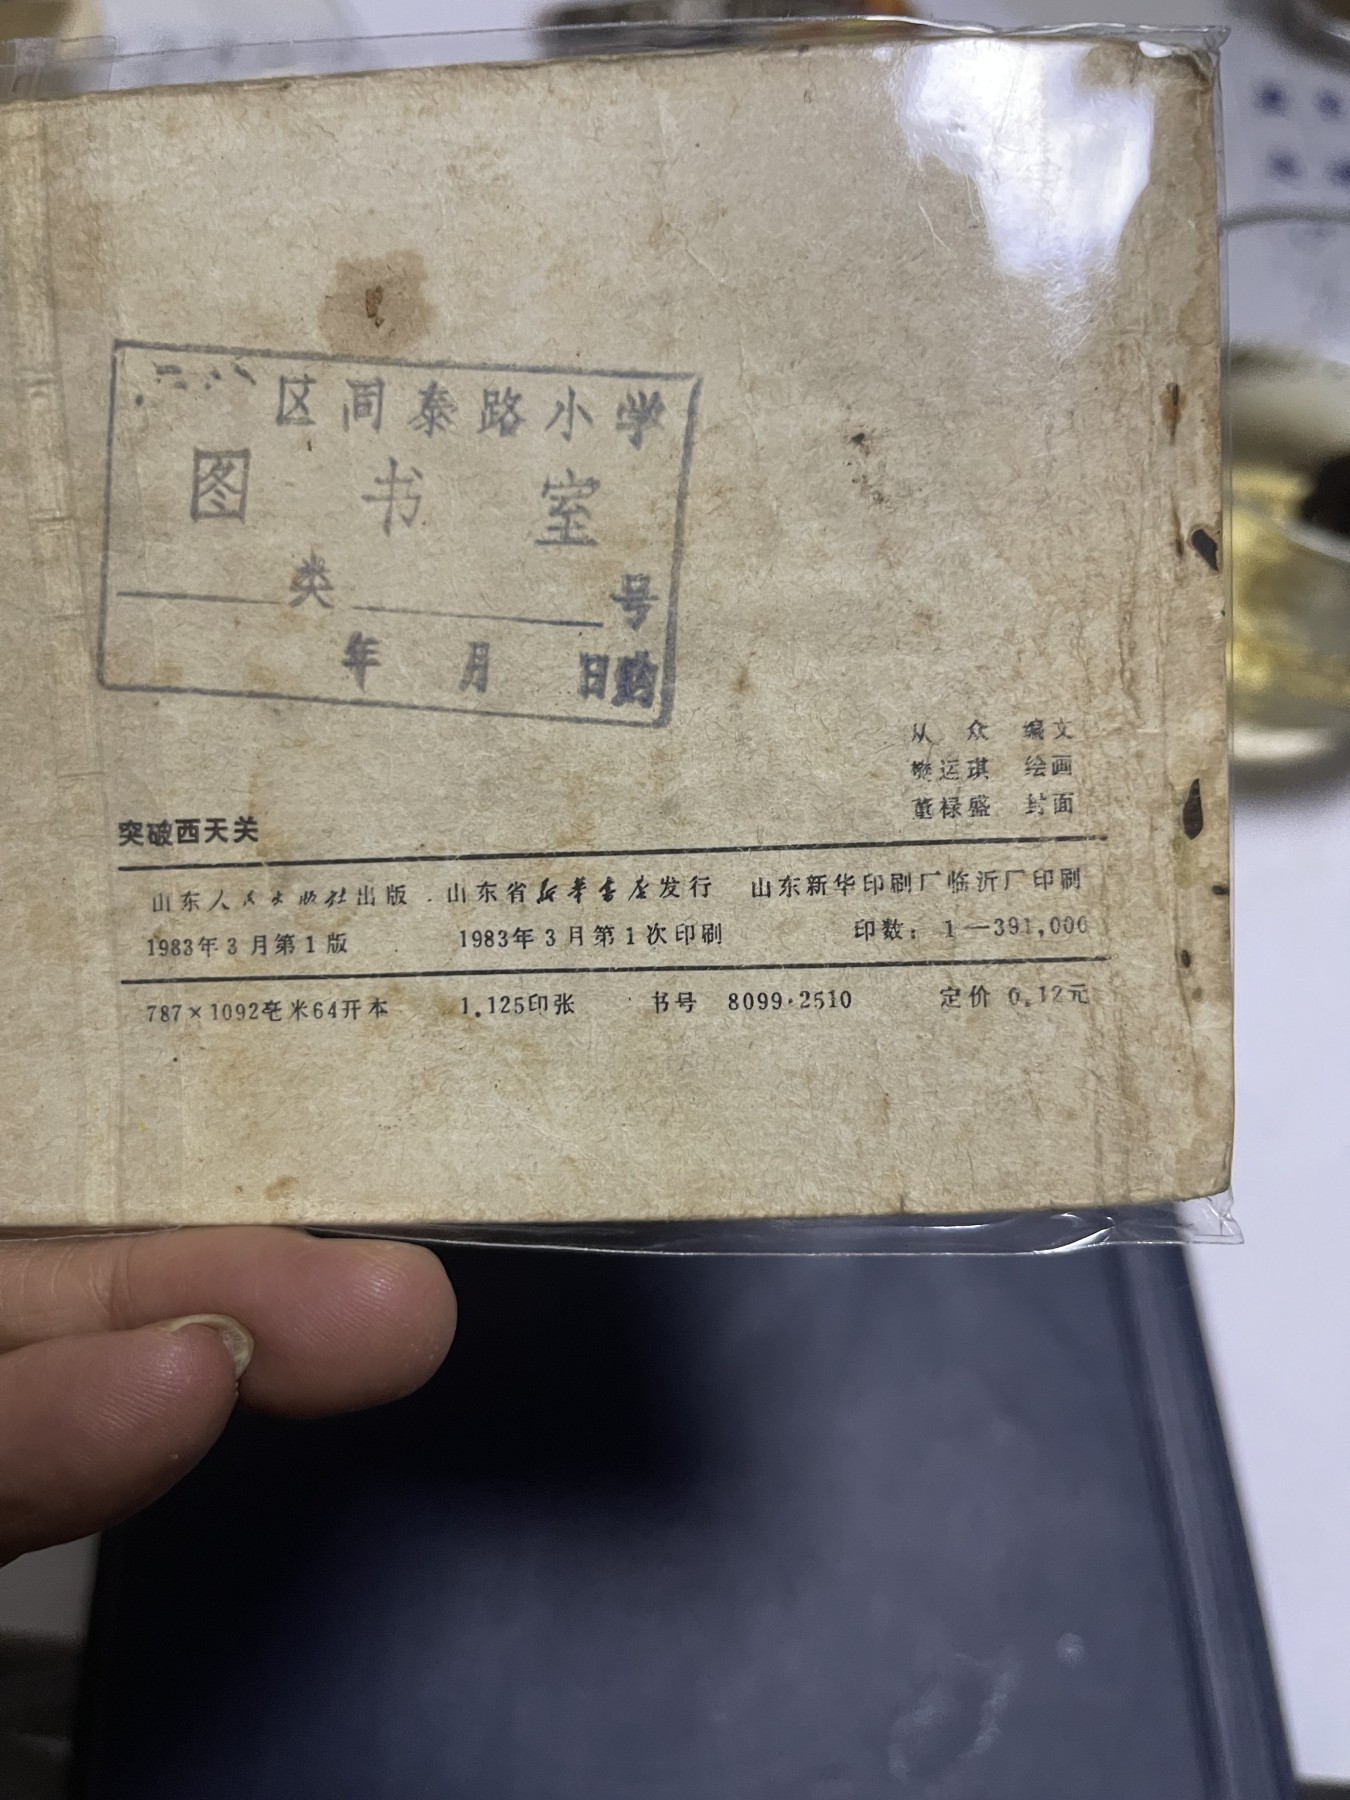 区同泰路小学
图书室
类 号
年 月 日购
从 众 编文
樊运琪 绘画
董禄盛 封面
突破西天关
山东人民出版社出版 山东省新华书店发行 山东新华印刷厂临沂厂印刷
1983年3月第1版 1983年3月第1次印刷 印数：1—391,000
787×1092毫米64开本 1.125印张 书号 8099·2510 定价 0.12元